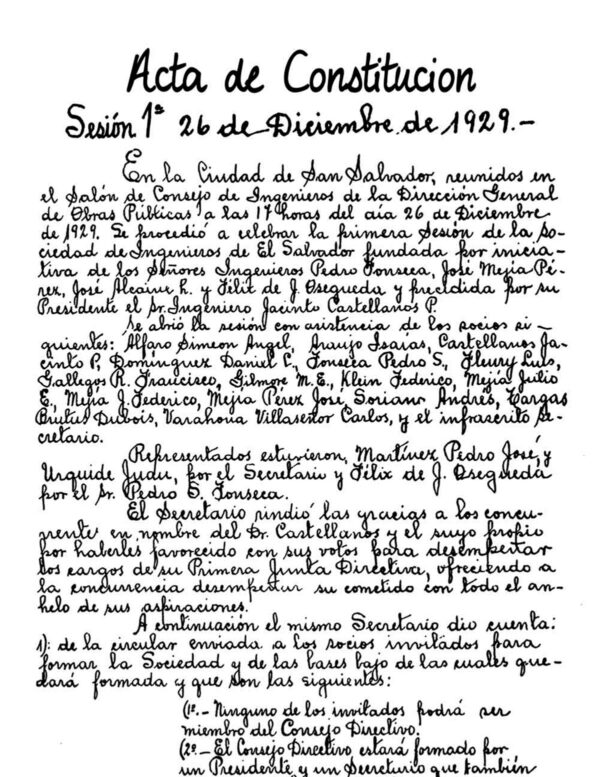 Acta de Constitucion
Sesión 1ª 26 de Diciembre de 1929.-
En la Ciudad de San Salvador, reunidos en
el Salón de Consejo de Ingenieros de la Dirección General
de Obras Públicas a las 17 horas del día 26 de Diciembre
de 1929. Se procedió a celebrar la primera Sesión de la So-
ciedad de Ingenieros de El Salvador fundada por inicia-
tiva de los Señores Ingenieros Pedro Fonseca, José Mejía Pé-
rez, José Alcaine h. y Félix de J. Osegueda y precidida por su
Presidente el Sr. Ingeniero Jacinto Castellanos P.
Se abrió la sesión con asistencia de los socios si-
guientes: Alfaro Simeon Angel, Araujo Isaías, Castellanos Ja-
cinto P, Domínguez Daniel C., Fonseca Pedro S., Fleury Luis,
Gallegos R. Francisco, Gilmore M. E., Klein Federico, Mejía Julio
E, Mejía J. Federico, Mejía Pérez José, Soriano Andrés, Vargas
Brutus Dubois, Varahona Villaseñor Carlos, y el infrascrito Se-
cretario.
Representados estuvieron, Martínez Pedro José, y
Urquide Judu, por el Secretario y Félix de J. Osegueda
por el Sr. Pedro S. Fonseca.
El Secretario rindió las gracias a los concu-
rrente en nombre del Dr. Castellanos y el suyo propio
por haberles favorecido con sus votos para desempeñar
los cargos de su Primera Junta Directiva, ofreciendo a
la concurrencia desempeñar su cometido con todo el an-
helo de sus aspiraciones.
A continuación el mismo Secretario dio cuenta:
1): de la circular enviada a los socios invitados para
formar la Sociedad y de las bases bajo de las cuales que-
dará formada y que son las siguientes:
(1º.- Ninguno de los invitados podrá ser
miembro del Consejo Directivo.
(2º.- El Consejo Directivo estará formado por
un Presidente y un Secretario que también